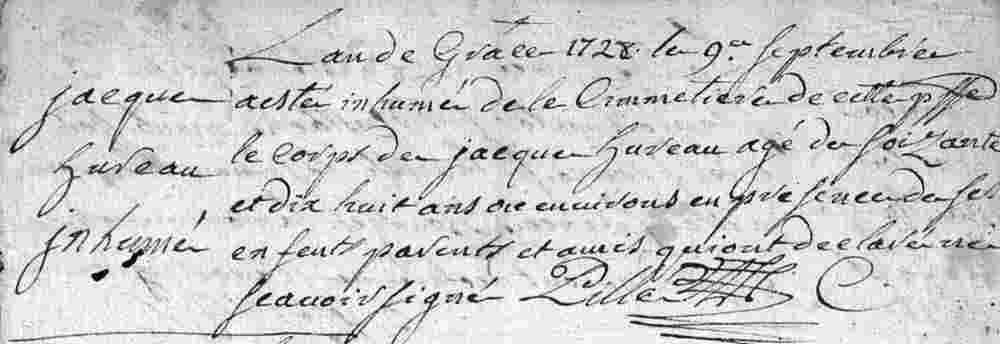 Lan de Grâce 1728. le 9e septembre
jacque
a esté inhumé de le Cimmetiere de cette psse
huveau
le corps de jacque huveau agé de soizante
et dix huit ans ou environs en presence de ses
jnhumé
enfents parents et amis qui ont declaré ne
scavoir signé Pille C.